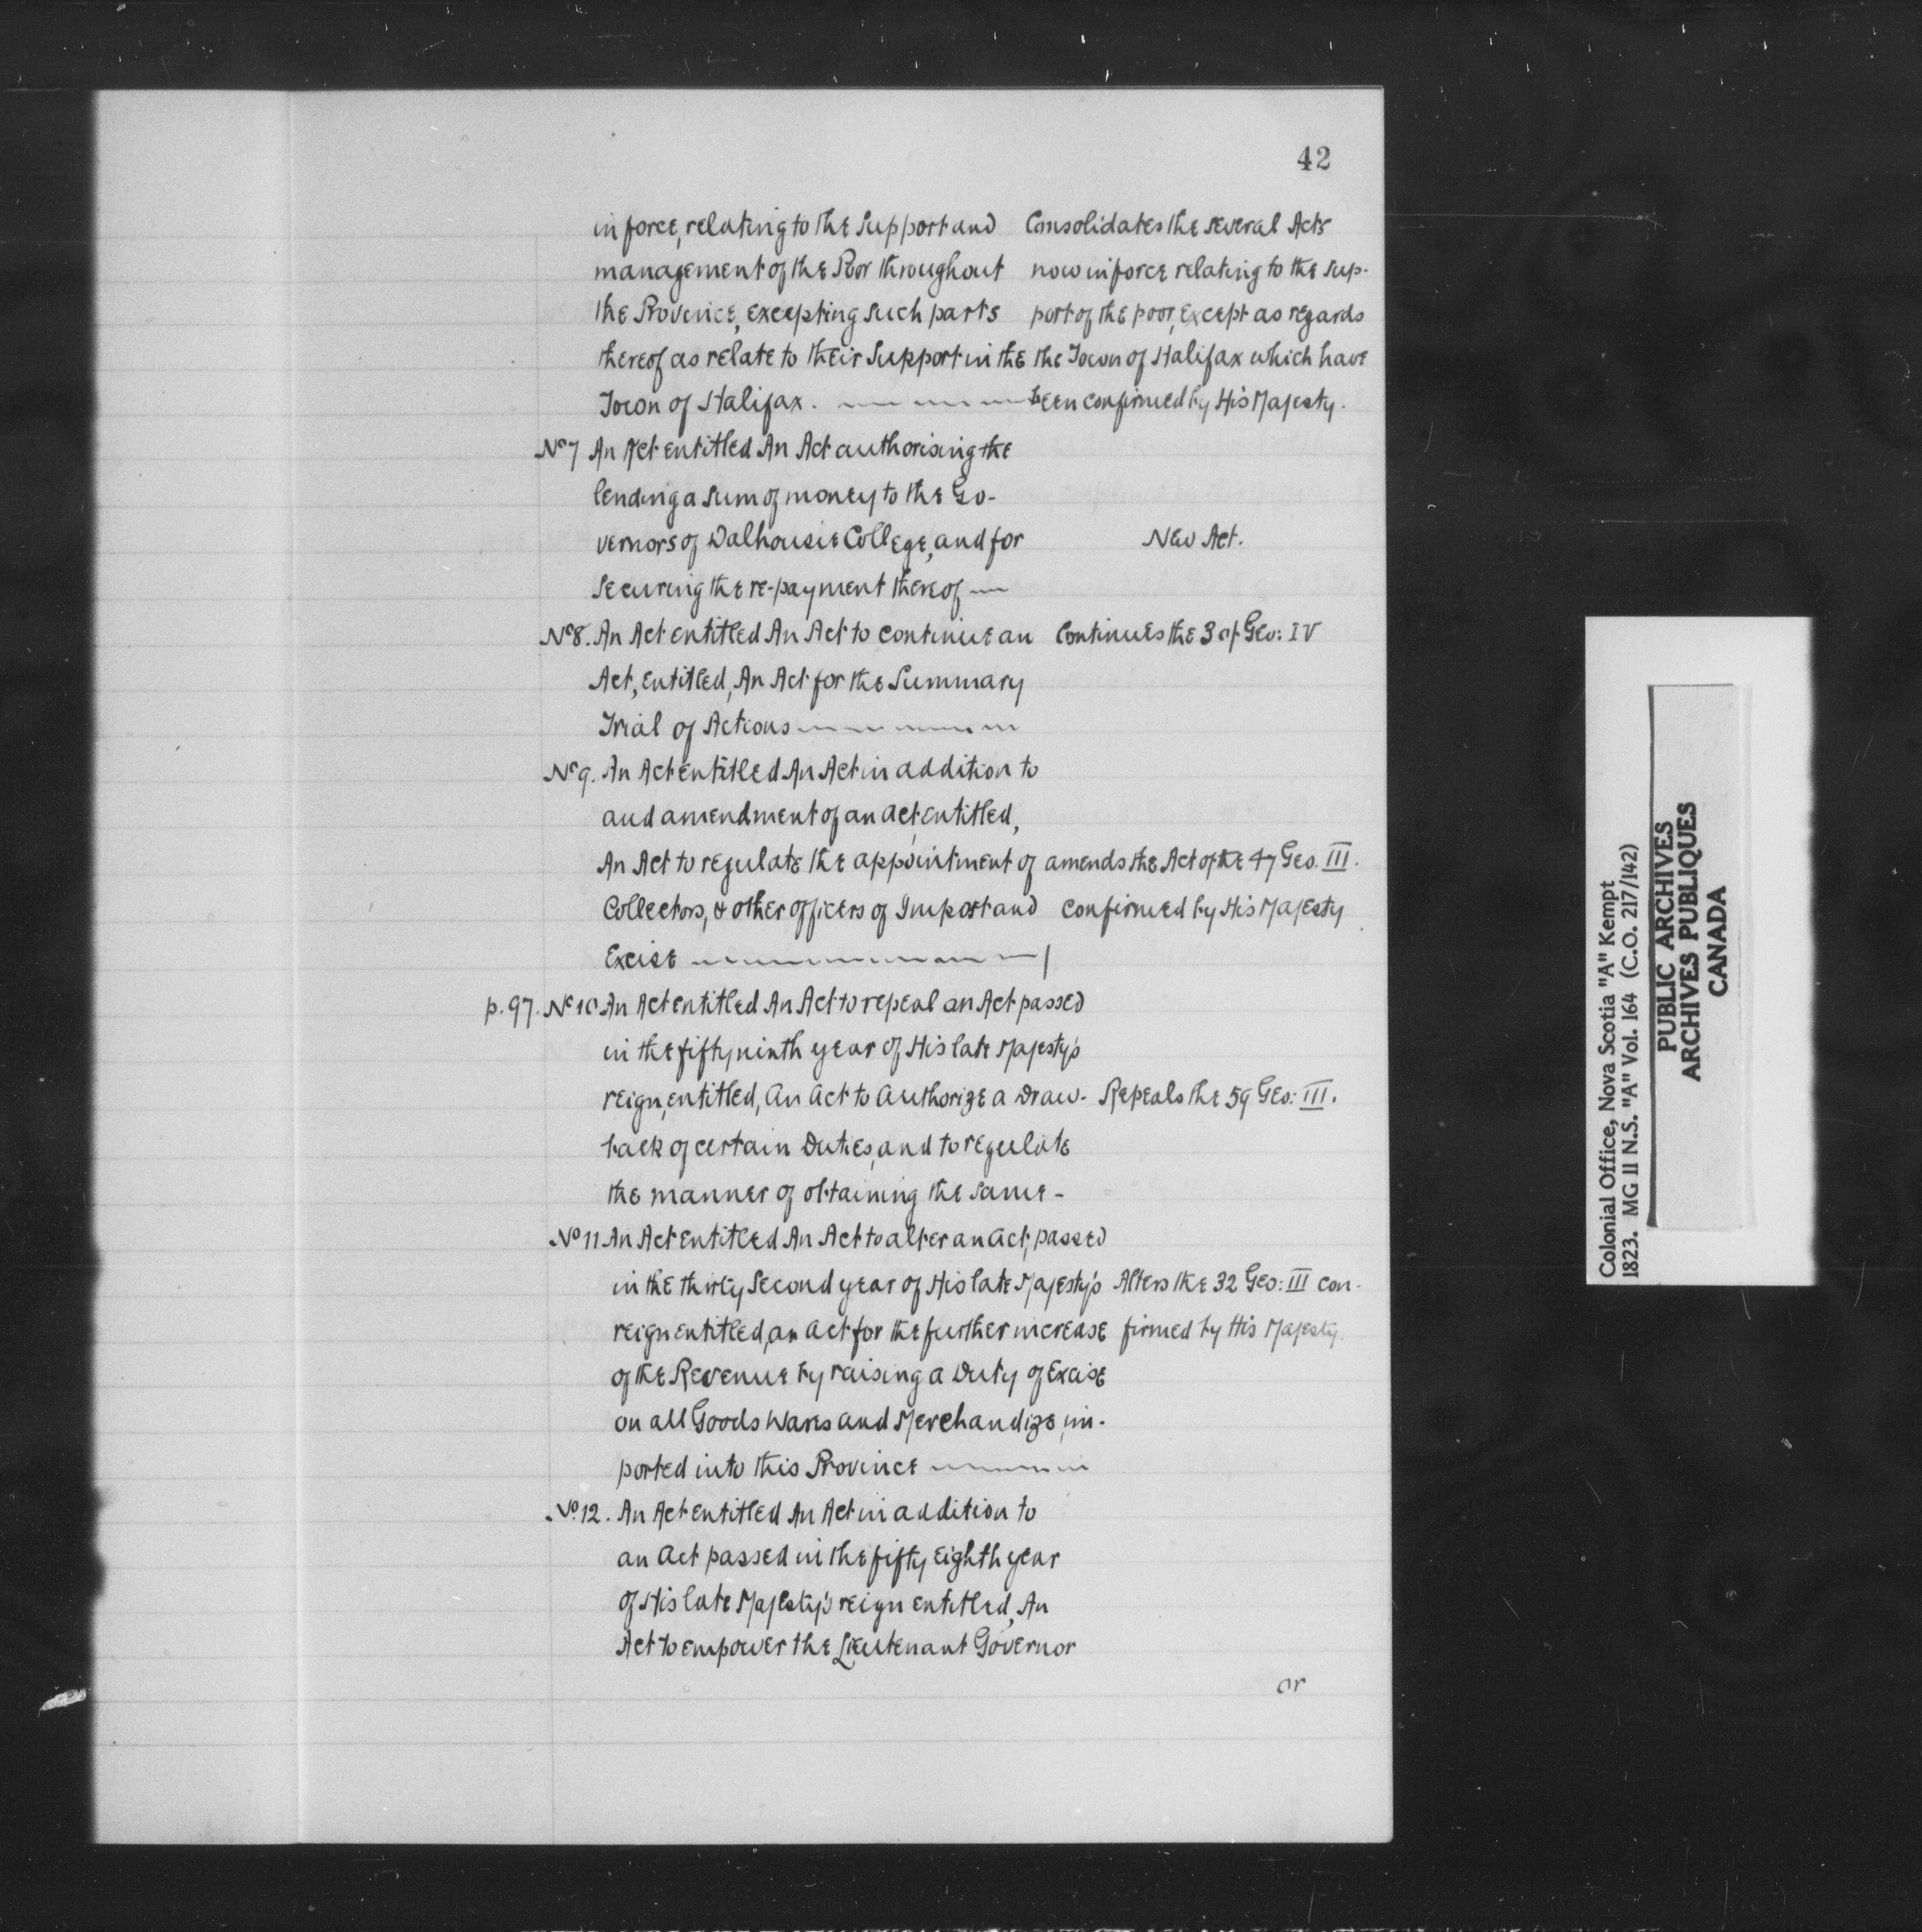 42
in force, relating to the Support and Consolidates the several Acts
management of the Poor throughout now in force relating to the sup-
the Province, excepting such parts port of the poor, except as regards
thereof as relate to their Support in the the Town of Halifax which have
Town of Halifax. been confirmed by His Majesty.
No 7 An Act entitled An Act authorising the
lending a sum of money to the Go-
vernors of Dalhousie College, and for New Act.
securing the re-payment thereof
No 8. An Act entitled An Act to continue an Continues the 3 of Geo: IV
Act, entitled, An Act for the Summary
Trial of Actions
No 9. An Act entitled An Act in addition to
and amendment of an act, entitled,
An Act to regulate the appointment of amends the Act of the 47 Geo. III.
Collectors, & other officers of Impost and confirmed by His Majesty
Excise
p. 97. No 10 An Act entitled An Act to repeal an Act passed
in the fifty ninth year of His late Majesty's
reign, entitled, An Act to Authorize a Draw- Repeals the 59 Geo: III.
back of certain Duties, and to regulate
the manner of obtaining the same -
No 11 An Act entitled An Act to alter an act, passed
in the thirty Second year of His late Majesty's Alters the 32 Geo: III con-
reign entitled, an Act for the further increase firmed by His Majesty.
of the Revenue by raising a Duty of Excise
on all Goods Wares and Merchandize, im-
ported into this Province
No. 12. An Act entitled An Act in addition to
an Act passed in the fifty eighth year
of His late Majesty's reign entitled, An
Act to empower the Lieutenant Governor
or
Colonial Office, Nova Scotia "A" Kempt
1823. MG 11 N.S. "A" Vol. 164 (C.O. 217/142)
PUBLIC ARCHIVES
ARCHIVES PUBLIQUES
CANADA